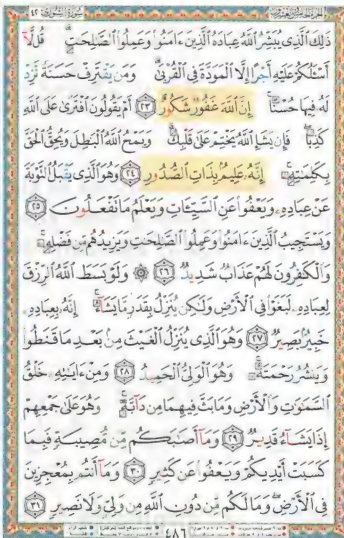 سُورَةُ الشُّورَىٰ ٤٢
ذَٰلِكَ ٱلَّذِى يُبَشِّرُ ٱللَّهُ عِبَادَهُ ٱلَّذِينَ ءَامَنُوا۟ وَعَمِلُوا۟ ٱلصَّـٰلِحَـٰتِ ۗ قُل لَّآ
أَسْـَٔلُكُمْ عَلَيْهِ أَجْرًا إِلَّا ٱلْمَوَدَّةَ فِى ٱلْقُرْبَىٰ ۗ وَمَن يَقْتَرِفْ حَسَنَةً نَّزِدْ
لَهُۥ فِيهَا حُسْنًا ۚ إِنَّ ٱللَّهَ غَفُورٌ شَكُورٌ ٢٣ أَمْ يَقُولُونَ ٱفْتَرَىٰ عَلَى ٱللَّهِ
كَذِبًا ۖ فَإِن يَشَإِ ٱللَّهُ يَخْتِمْ عَلَىٰ قَلْبِكَ ۗ وَيَمْحُ ٱللَّهُ ٱلْبَـٰطِلَ وَيُحِقُّ ٱلْحَقَّ
بِكَلِمَـٰتِهِۦٓ ۚ إِنَّهُۥ عَلِيمٌۢ بِذَاتِ ٱلصُّدُورِ ٢٤ وَهُوَ ٱلَّذِى يَقْبَلُ ٱلتَّوْبَةَ
عَنْ عِبَادِهِۦ وَيَعْفُوا۟ عَنِ ٱلسَّيِّـَٔاتِ وَيَعْلَمُ مَا تَفْعَلُونَ ٢٥
وَيَسْتَجِيبُ ٱلَّذِينَ ءَامَنُوا۟ وَعَمِلُوا۟ ٱلصَّـٰلِحَـٰتِ وَيَزِيدُهُم مِّن فَضْلِهِۦ ۚ
وَٱلْكَـٰفِرُونَ لَهُمْ عَذَابٌ شَدِيدٌ ٢٦ ۞ وَلَوْ بَسَطَ ٱللَّهُ ٱلرِّزْقَ
لِعِبَادِهِۦ لَبَغَوْا۟ فِى ٱلْأَرْضِ وَلَـٰكِن يُنَزِّلُ بِقَدَرٍ مَّا يَشَآءُ ۚ إِنَّهُۥ بِعِبَادِهِۦ
خَبِيرٌۢ بَصِيرٌ ٢٧ وَهُوَ ٱلَّذِى يُنَزِّلُ ٱلْغَيْثَ مِنۢ بَعْدِ مَا قَنَطُوا۟
وَيَنشُرُ رَحْمَتَهُۥ ۚ وَهُوَ ٱلْوَلِىُّ ٱلْحَمِيدُ ٢٨ وَمِنْ ءَايَـٰتِهِۦ خَلْقُ
ٱلسَّمَـٰوَٰتِ وَٱلْأَرْضِ وَمَا بَثَّ فِيهِمَا مِن دَآبَّةٍ ۚ وَهُوَ عَلَىٰ جَمْعِهِمْ
إِذَا يَشَآءُ قَدِيرٌ ٢٩ وَمَآ أَصَـٰبَكُم مِّن مُّصِيبَةٍ فَبِمَا
كَسَبَتْ أَيْدِيكُمْ وَيَعْفُوا۟ عَن كَثِيرٍ ٣٠ وَمَآ أَنتُم بِمُعْجِزِينَ
فِى ٱلْأَرْضِ ۖ وَمَا لَكُم مِّن دُونِ ٱللَّهِ مِن وَلِىٍّ وَلَا نَصِيرٍ ٣١
٤٨٦